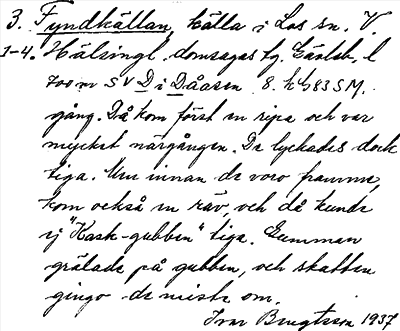 3. Fyndkällan, källa i Los sn. V.
3-4. Hälsingl. domsagas tg. Gävleb. l
700 m SV D i Dåasen 8. h 4583 SM.
gång. Då kom först en ripa och var
mycket närgången. De lyckades dock
tiga. Men innan de voro framme,
kom också en räv, och då kunde
ej "Kask-gubben" tiga. Gumman
grälade på gubben, och skatten
gingo de miste om.
Ivar Bengtsson 1937